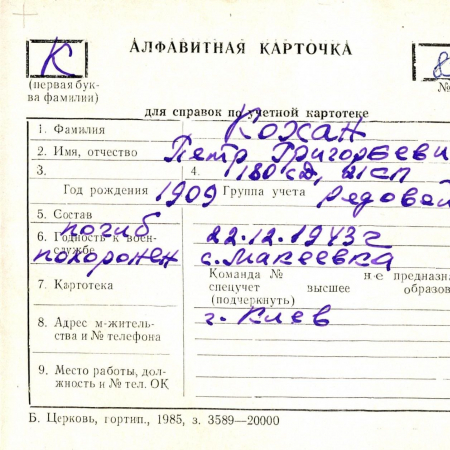 К
АЛФАВИТНАЯ КАРТОЧКА
8
(первая бук-
ва фамилии)
№
для справок по учетной картотеке
1. Фамилия Кохан
2. Имя, отчество Петр Григорьеви
3. 4. 180 сд, 21 сп
Год рождения 1909 Группа учета Рядовой
5. Состав
погиб
6. Годность к воен- 22.12.1943 г
службе
похоронен с. Макеевка
7. Картотека
Команда № н-е предназна
спецучет высшее образов
(подчеркнуть)
8. Адрес м-житель- г. Киев
ства и № телефона
9. Место работы, дол-
жность и № тел. ОК
Б. Церковь, гортип., 1985, з. 3589—20000